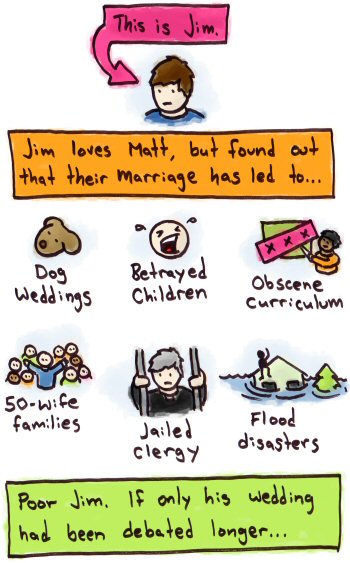 This is Jim.
Jim loves Matt, but found out
that their marriage has led to...
Dog
Weddings
Betrayed
Children
xxx
Obscene
Curriculum
50-wife
families
Jailed
clergy
Flood
disasters
Poor Jim. If only his wedding
had been debated longer...